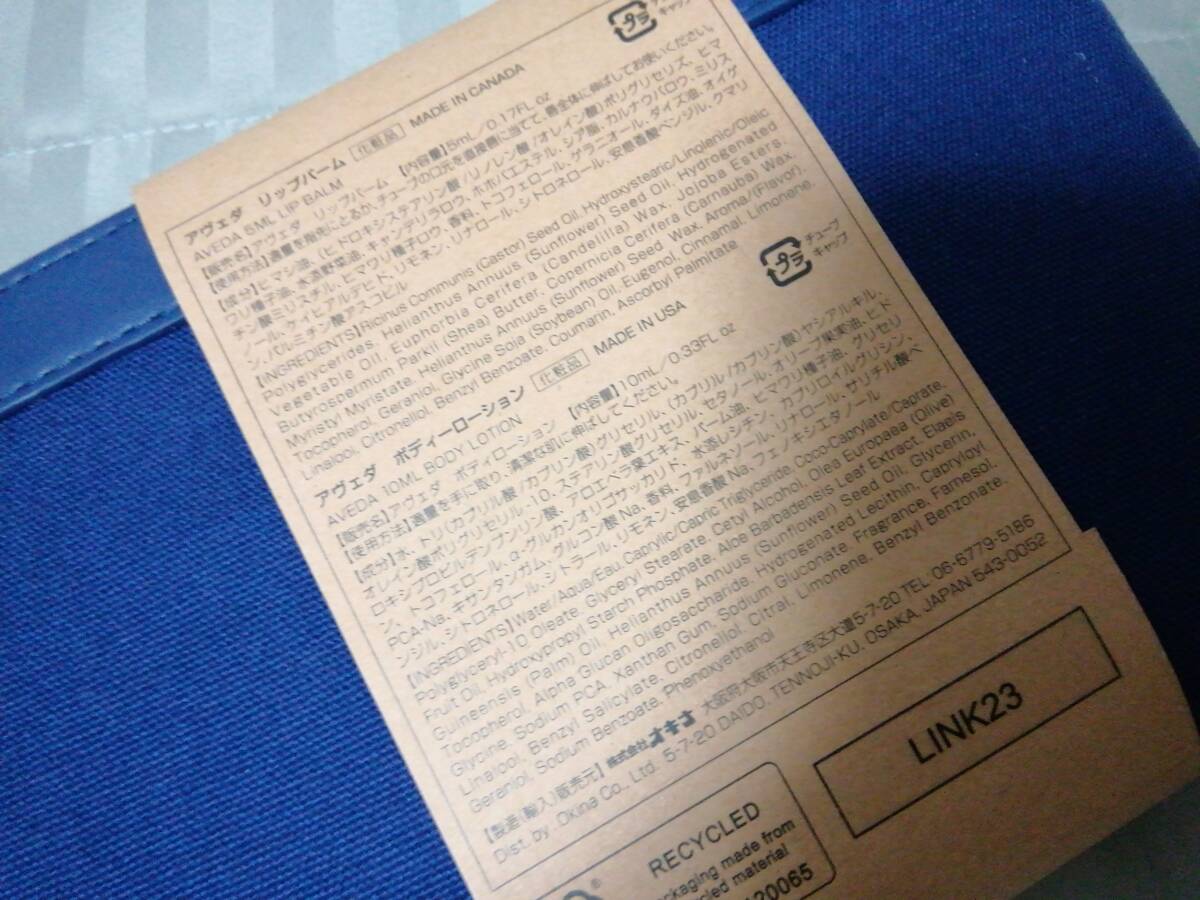 プラ
キャップ
アヴェダ リップバーム 化粧品 MADE IN CANADA
AVEDA 5ML LIP BALM
【販売名】アヴェダ リップバーム 【内容量】5mL／0.17FL oz
【使用方法】適量を指先にとるか、チューブの口元を直接唇に当てて、唇全体に伸ばしてお使いください。
【成分】ヒマシ油、(ヒドロキシステアリン酸/リノレン酸/オレイン酸)ポリグリセリズ、ヒマ
ワリ種子油、水添野菜油、キャンデリラロウ、ホホバエステル、シア脂、カルナウバロウ、ミリス
チン酸ミリスチル、ヒマワリ種子ロウ、香料、トコフェロール、ゲラニオール、ダイズ油、オイゲ
ノール、ケイヒアルデヒド、リモネン、リナロール、シトロネロール、安息香酸ベンジル、クマリ
ン、パルミチン酸アスコビル
【INGREDIENTS】Ricinus Communis (Castor) Seed Oil, Hydroxystearic/Linolenic/Oleic
Polyglycerides, Helianthus Annuus (Sunflower) Seed Oil, Hydrogenated
Vegetable Oil, Euphorbia Cerifera (Candelilla) Wax, Jojoba Esters,
Butyrospermum Parkii (Shea) Butter, Copernicia Cerifera (Carnauba) Wax,
Myristyl Myristate, Helianthus Annuus (Sunflower) Seed Wax, Aroma/(Flavor),
Tocopherol, Geraniol, Glycine Soja (Soybean) Oil, Eugenol, Cinnamal, Limonene,
Linalool, Citronellol, Benzyl Benzoate, Coumarin, Ascorbyl Palmitate
プラ
チューブ
キャップ
アヴェダ ボディーローション 化粧品 MADE IN USA
AVEDA 10ML BODY LOTION
【販売名】アヴェダ ボディーローション 【内容量】10mL／0.33FL oz
【使用方法】適量を手に取り、清潔な肌に伸ばしてください。
【成分】水、トリ(カプリル酸/カプリン酸)グリセリル、(カプリル/カプリン酸)ヤシアルキル、
オレイン酸ポリグリセリル-10、ステアリン酸グリセリル、セタノール、オリーブ果実油、ヒド
ロキシプロピルデンプンリン酸、アロエベラ葉エキス、パーム油、ヒマワリ種子油、グリセリ
ン、トコフェロール、α-グルカンオリゴサッカリド、水添レシチン、カプリロイルグリシン、
PCA-Na、キサンタンガム、グルコン酸Na、香料、ファルネソール、リナロール、サリチル酸ベ
ンジル、シトロネロール、シトラール、リモネン、安息香酸Na、フェノキシエタノール
【INGREDIENTS】Water/Aqua/Eau, Caprylic/Capric Triglyceride, Coco-Caprylate/Caprate,
Polyglyceryl-10 Oleate, Glyceryl Stearate, Cetyl Alcohol, Olea Europaea (Olive)
Fruit Oil, Hydroxypropyl Starch Phosphate, Aloe Barbadensis Leaf Extract, Elaeis
Guineensis (Palm) Oil, Helianthus Annuus (Sunflower) Seed Oil, Glycerin,
Tocopherol, Alpha Glucan Oligosaccharide, Hydrogenated Lecithin, Capryloyl
Glycine, Sodium PCA, Xanthan Gum, Sodium Gluconate, Fragrance, Farnesol,
Linalool, Benzyl Salicylate, Citronellol, Citral, Limonene, Benzyl Benzonate,
Geraniol, Sodium Benzoate, Phenoxyethanol
【製造(輸入)販売元】株式会社オキナ 大阪府大阪市天王寺区大道5-7-20 TEL 06-6779-5186
Dist. by : Okina Co., Ltd. 5-7-20 DAIDO, TENNOJI-KU, OSAKA, JAPAN 543-0052
LINK23
RECYCLED
ackaging made from
cled material
20065